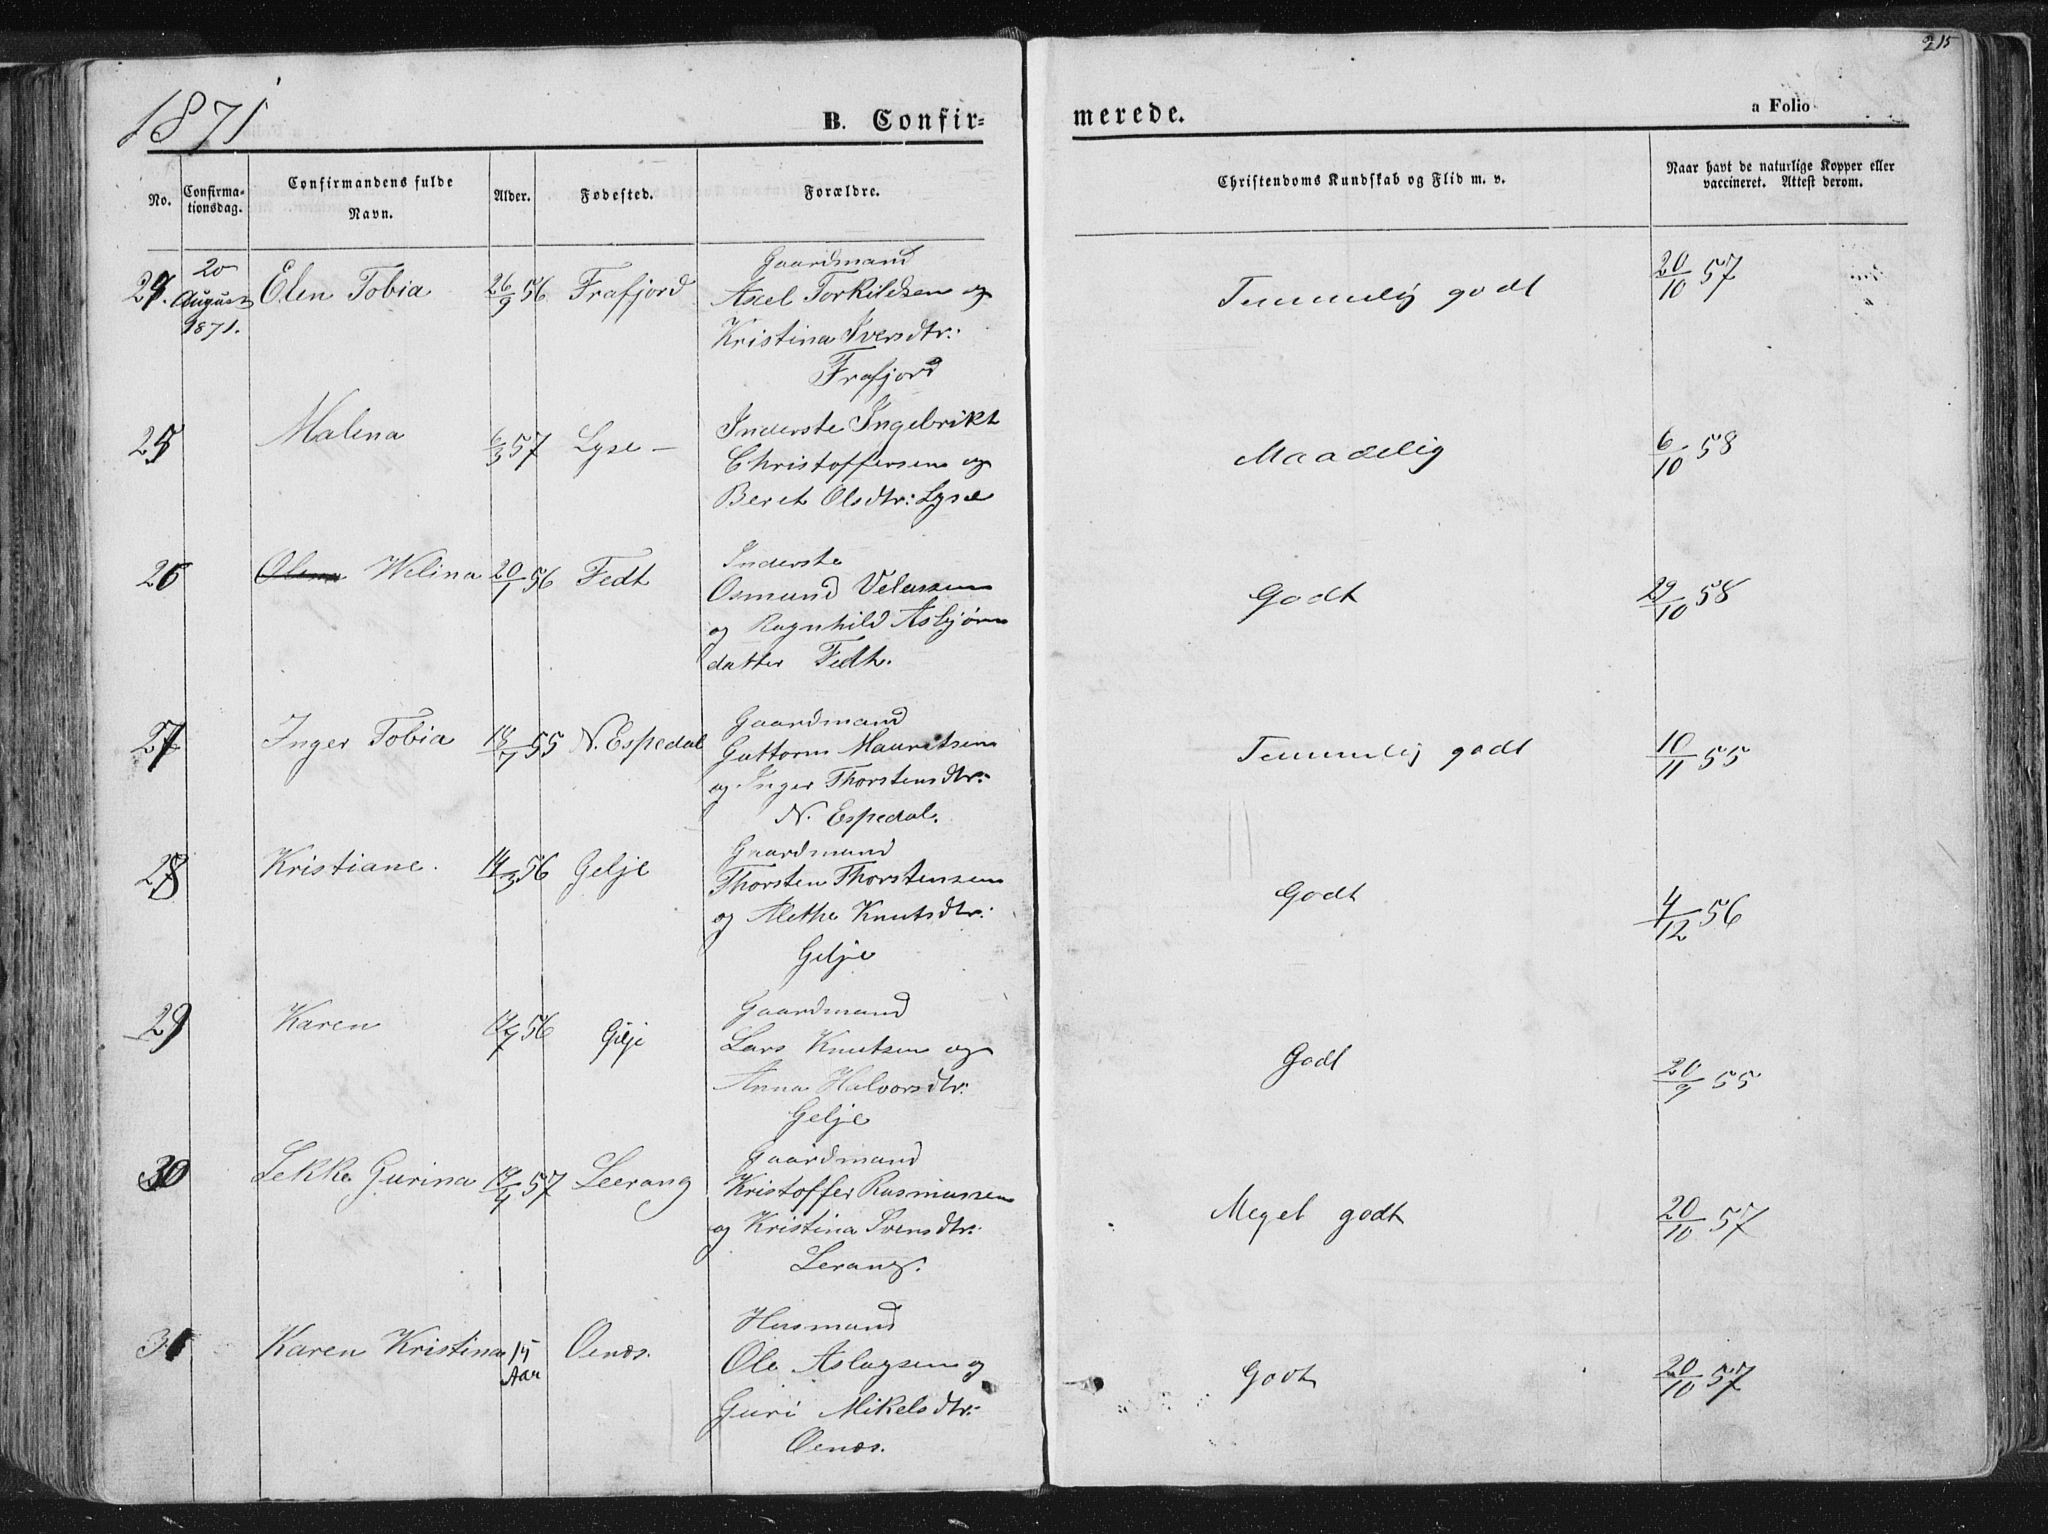 1871
B. Confir=
merede.
a Folio
215
No.
Confirma-
tionsdag.
Confirmandens fulde
Navn.
Alder.
Fødested.
Forældre.
Christendoms Kundskab og Flid m. v.
Naar havt de naturlige Kopper eller
vaccineret. Attest derom.
24.
20
August
1871.
Elen Tobia
26/9 56
Frafjord
Gaardmand
Axel Torkildsen og
Kristina Iversdtr:
Frafjord
Temmelig godt
20/10 57
25
Malena
6/3 57
Lyse
Inderste Ingebrikt
Christoffersen og
Beret Olsdtr: Lyse
Maadelig
6/10 58
26
Olena Welina
20/1 56
Fedt
Inderste
Osmund Velassen
og Ragnhild Asbjørn
datter Fedt.
Godt
29/10 58
27
Inger Tobia
18/7 55
N. Espedal
Gaardmand
Guttorm Mauritsen
og Inger Thorstensdtr:
N. Espedal.
Temmelig godt
10/11 55
28
Kristiane.
14/3 56
Gelje
Gaardmand
Thorsten Thorstensen
og Alethe Knutsdtr:
Gelje
Godt
4/12 56
29
Karen
56
Gilje
Gaardmand
Lars Knutsen og
Anna Halvorsdtr:
Gelje
Godt
20/9 55
30
Lekke Gurina
17/4 57
Leerang
Gaardmand
Kristoffer Rasmussen
og Kristina Svensdtr:
Lerang.
Meget godt
20/10 57
31
Karen Kristina
15
Aar
Oenæs.
Husmand
Ole Aslagsen og
Guri Mikelsdtr:
Oenæs.
Godt
20/10 57